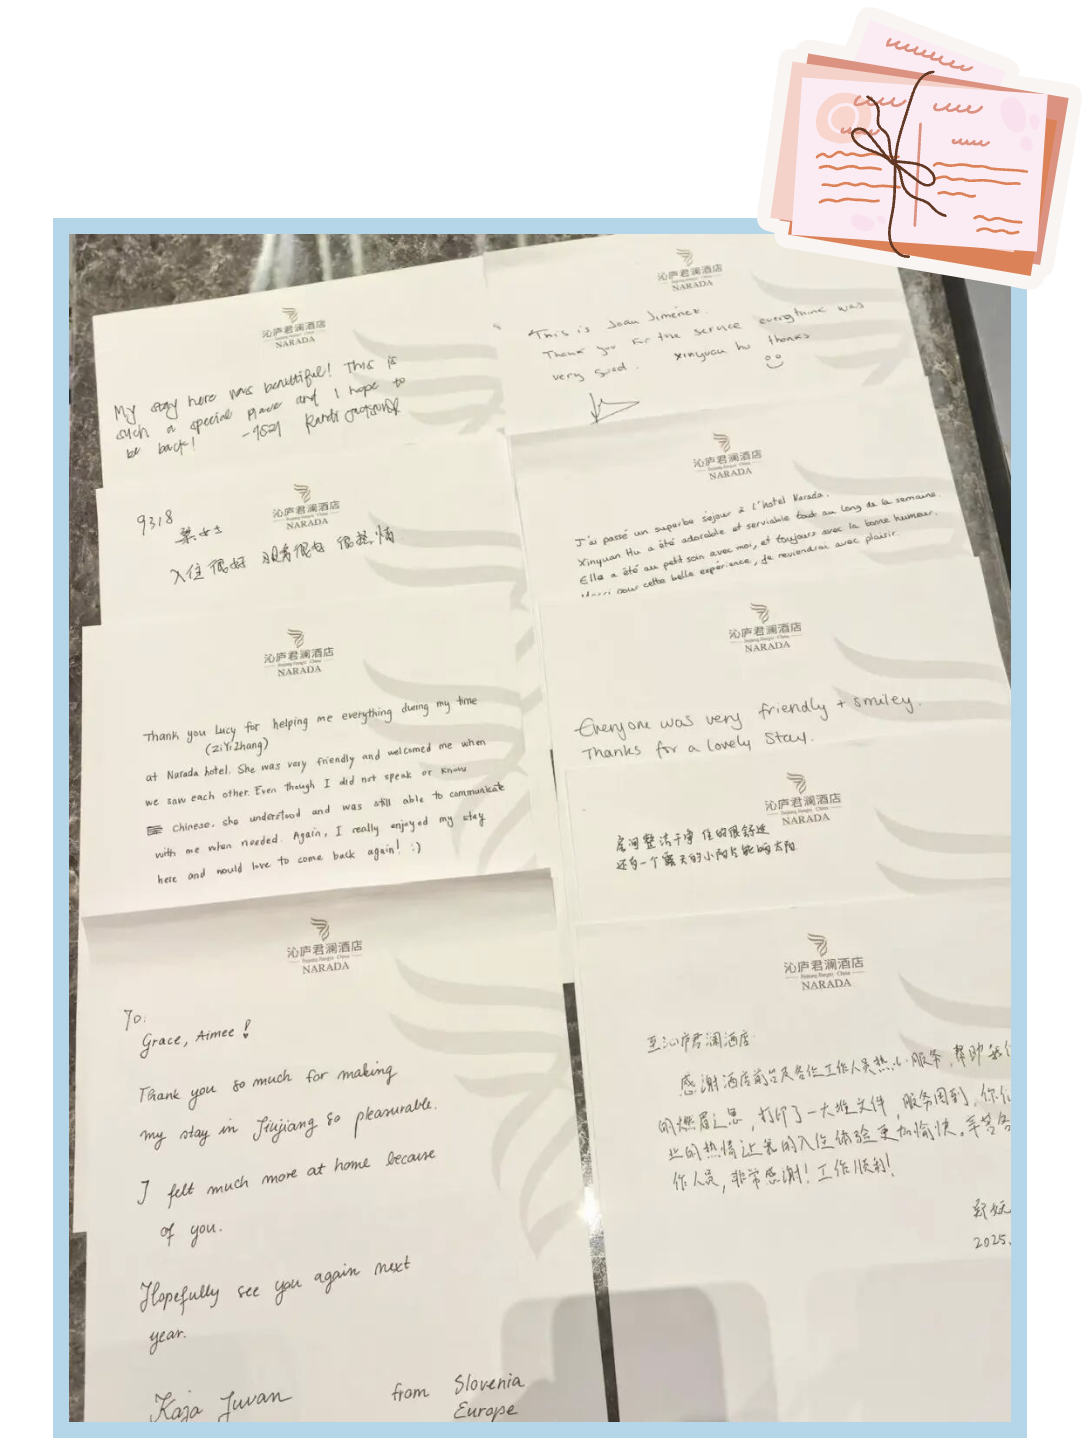 沁庐君澜酒店
NARADA
My stay here was beautiful! This is
such a special place and I hope to
be back! -9521 Randi Jackson
沁庐君澜酒店
Jiujiang Jiangxi · China
NARADA
9318
梁女士
入住很好 服务很好 很热情
沁庐君澜酒店
Jiujiang Jiangxi · China
NARADA
Thank you Lucy for helping me everything during my time
(ZiYi Zhang)
at Narada hotel. She was very friendly and welcomed me when
we saw each other. Even though I did not speak or know
Chinese, she understood and was still able to communicate
with me when needed. Again, I really enjoyed my stay
here and would love to come back again! :)
沁庐君澜酒店
Jiujiang Jiangxi · China
NARADA
To:
Grace, Aimee!
Thank you so much for making
my stay in Jiujiang so pleasurable.
I felt much more at home because
of you.
Hopefully see you again next
year.
Kaja Juvan from Slovenia
Europe
沁庐君澜酒店
NARADA
This is Joan Jimenez.
Thank you for the service everything was
very good. xinyuan hu thanks
沁庐君澜酒店
Jiujiang Jiangxi · China
NARADA
J'ai passé un superbe séjour à l'hotel Narada.
Xinyuan Hu a été adorable et serviable tout au long de la semaine.
Elle a été au petit soin avec moi, et toujours avec la bonne humeur.
Merci pour cette belle expérience, je reviendrai avec plaisir.
沁庐君澜酒店
Jiujiang Jiangxi · China
NARADA
Everyone was very friendly + smiley.
Thanks for a lovely stay.
沁庐君澜酒店
Jiujiang Jiangxi · China
NARADA
房间整洁干净 住的很舒适
还有一个露天的小阳台能晒太阳
沁庐君澜酒店
Jiujiang Jiangxi · China
NARADA
至沁庐君澜酒店:
感谢酒店前台及各位工作人员热心服务,帮助我们
的燃眉之急,打印了一大堆文件,服务周到,你们
业的热情让我的入住体验更加愉快。辛苦各
作人员,非常感谢!工作顺利!
2025.